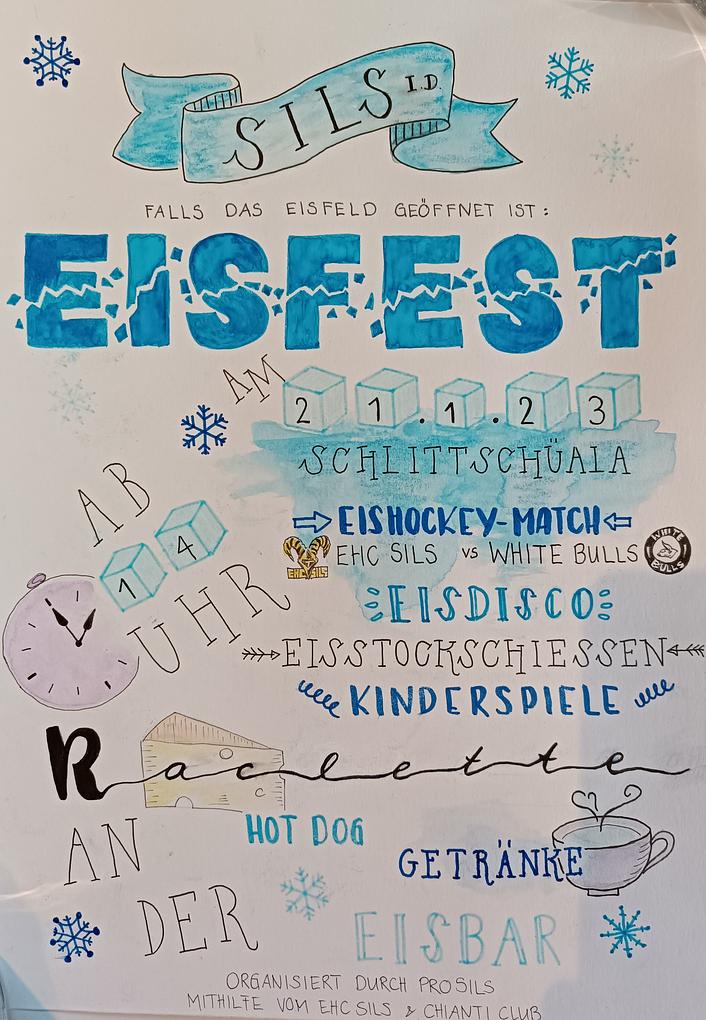 SILS I.D.
FALLS DAS EISFELD GEÖFFNET IST:
EISFEST
AM 21.1.23
SCHLITTSCHÜALA
AB 14 UHR
EISHOCKEY-MATCH
EHC SILS
EHC SILS vs WHITE BULLS
WHITE BULLS
EISDISCO
EISSTOCKSCHIESSEN
KINDERSPIELE
Raclette
HOT DOG
GETRÄNKE
AN DER EISBAR
ORGANISIERT DURCH PROSILS
MITHILFE VOM EHC SILS & CHIANTI CLUB